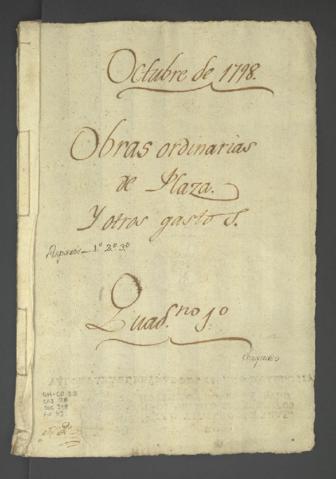 Octubre de 1798.
Obras ordinarias
de Plaza.
Y otros gastos.
1º 2º 3º
Quadno. 1º